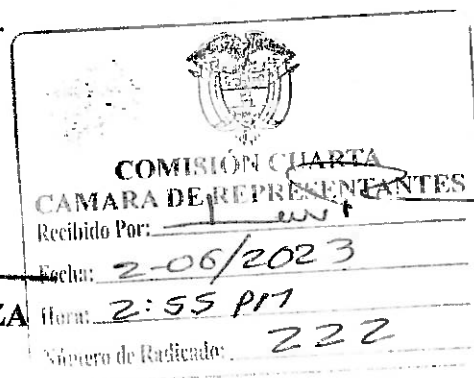 COMISIÓN CUARTA
CAMARA DE REPRESENTANTES
Recibido Por:
Fecha: 2-06/2023
ZA
Hora: 2:55 PM
Número de Radicado: 222